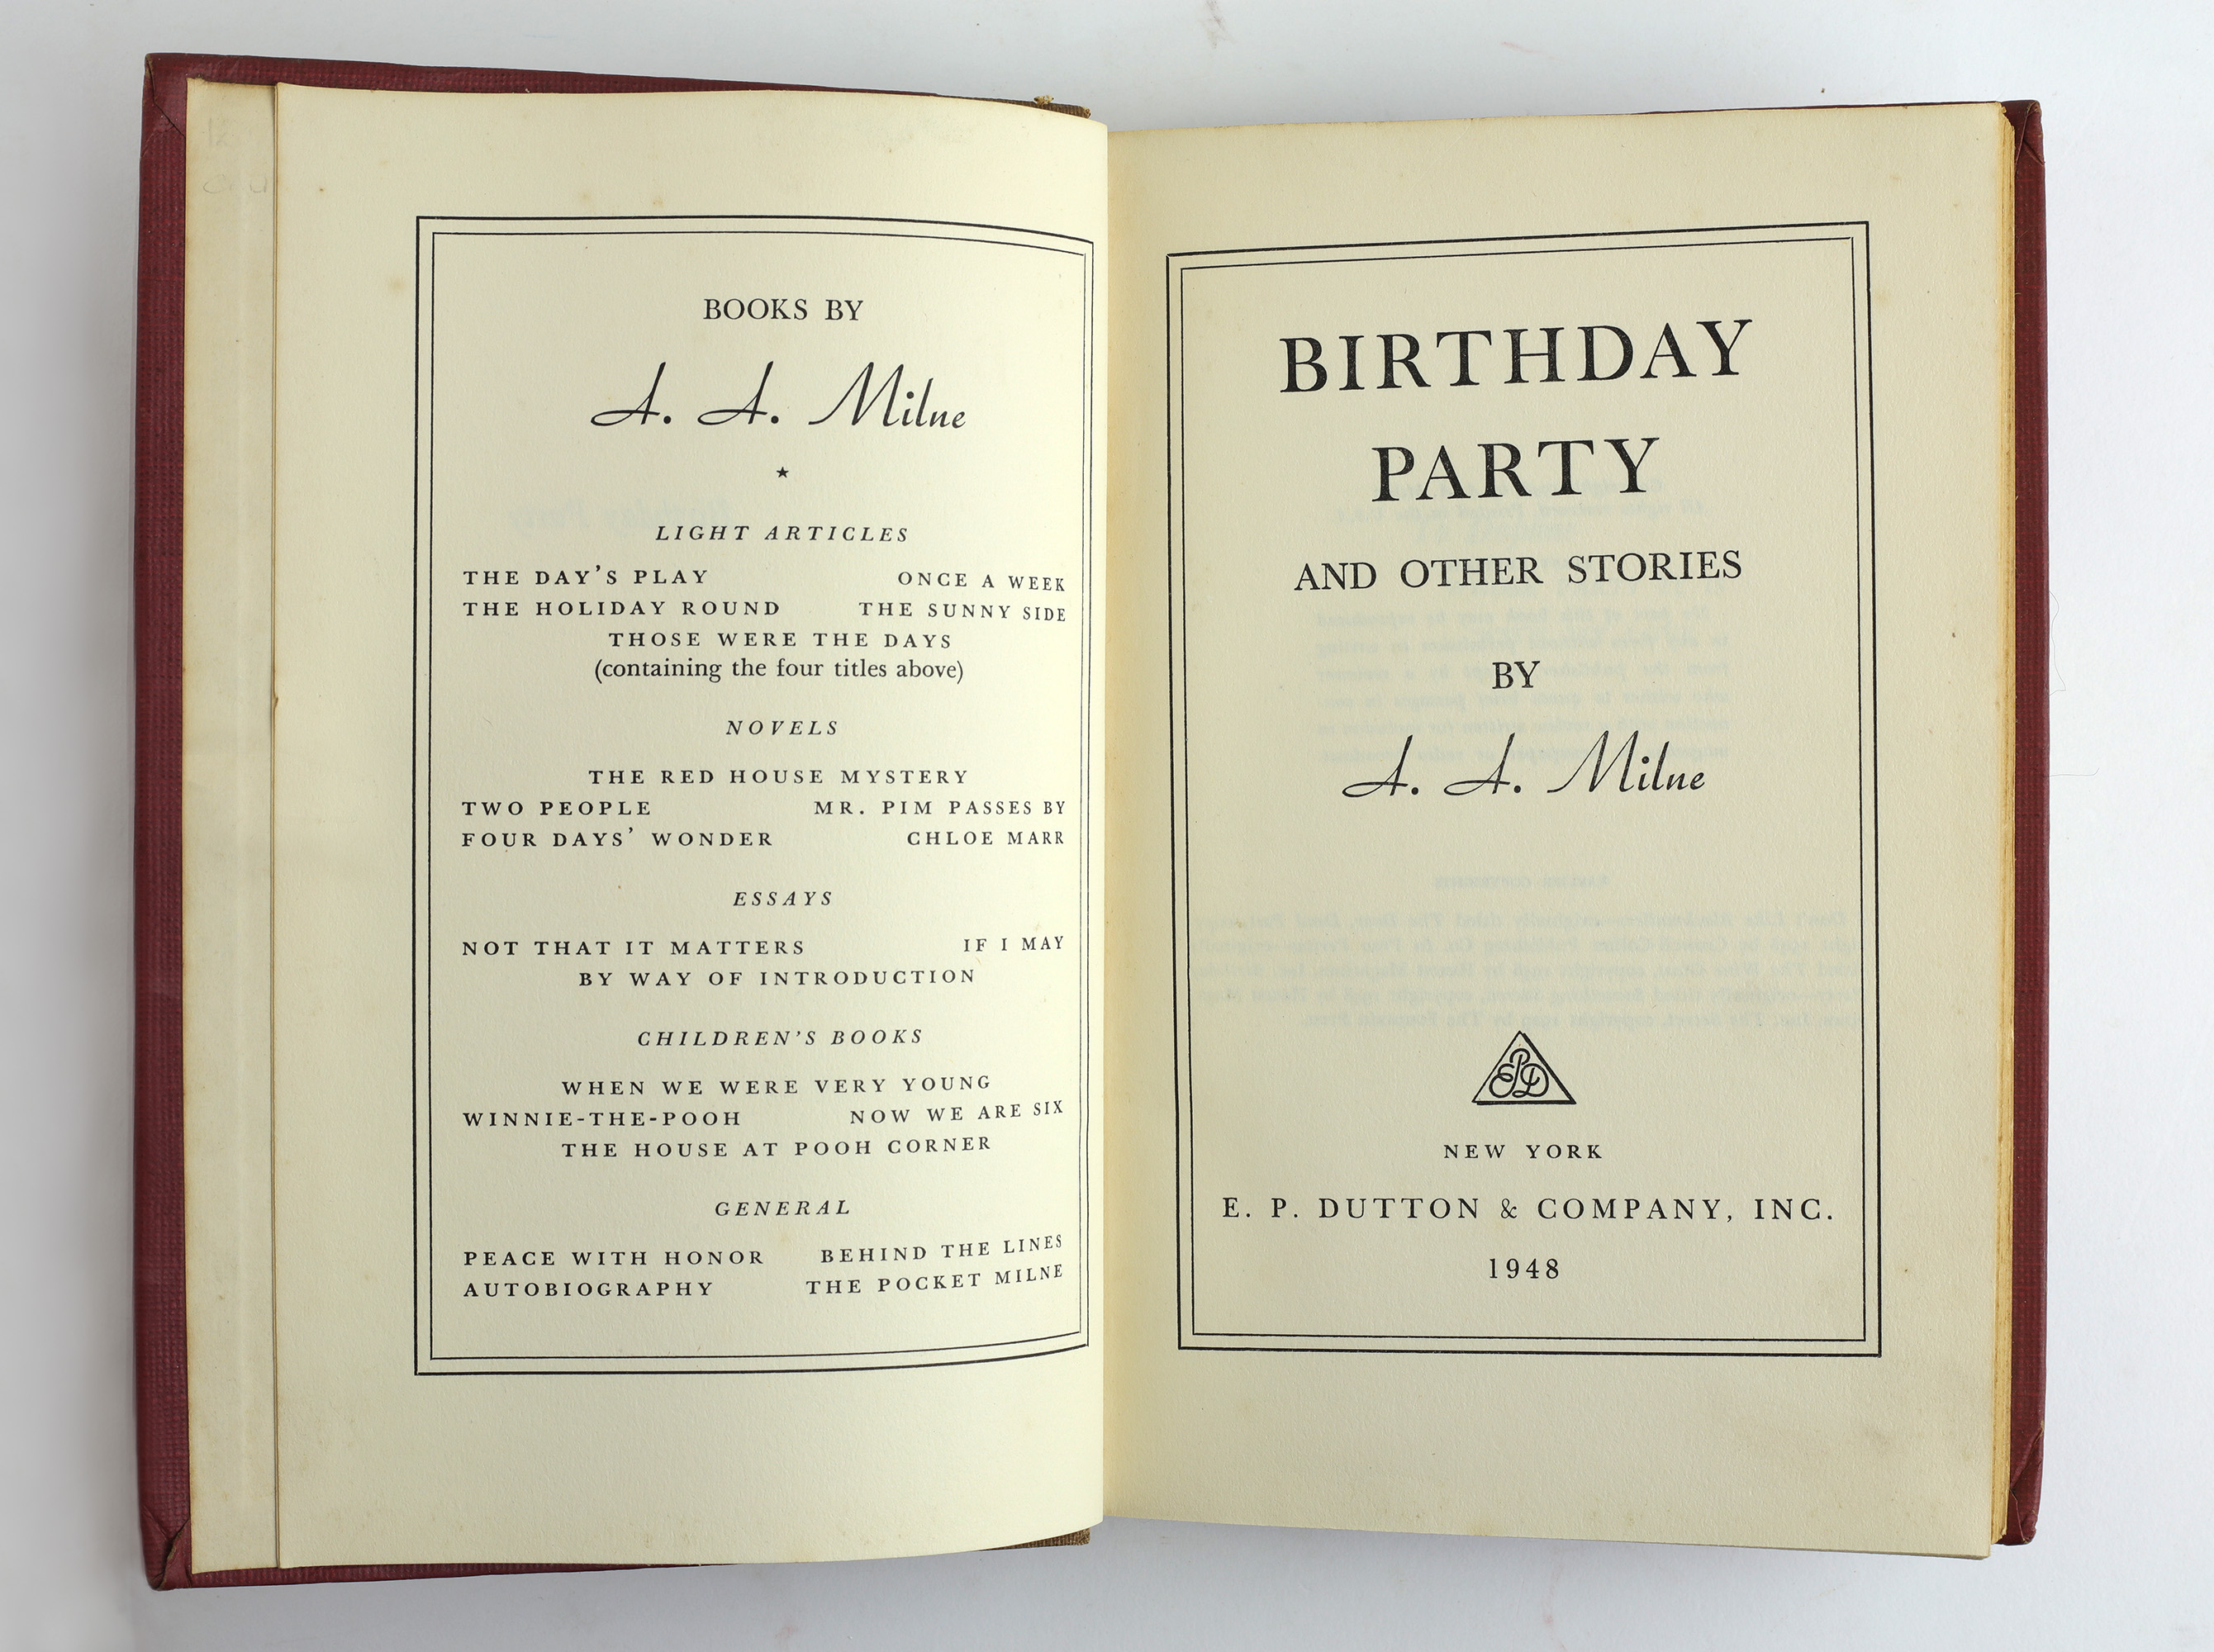 BOOKS BY
A. A. Milne
★
LIGHT ARTICLES
THE DAY'S PLAY ONCE A WEEK
THE HOLIDAY ROUND THE SUNNY SIDE
THOSE WERE THE DAYS
(containing the four titles above)
NOVELS
THE RED HOUSE MYSTERY
TWO PEOPLE MR. PIM PASSES BY
FOUR DAYS' WONDER CHLOE MARR
ESSAYS
NOT THAT IT MATTERS IF I MAY
BY WAY OF INTRODUCTION
CHILDREN'S BOOKS
WHEN WE WERE VERY YOUNG
WINNIE-THE-POOH NOW WE ARE SIX
THE HOUSE AT POOH CORNER
GENERAL
PEACE WITH HONOR BEHIND THE LINES
AUTOBIOGRAPHY THE POCKET MILNE
BIRTHDAY
PARTY
AND OTHER STORIES
BY
A. A. Milne
EPD
NEW YORK
E. P. DUTTON & COMPANY, INC.
1948